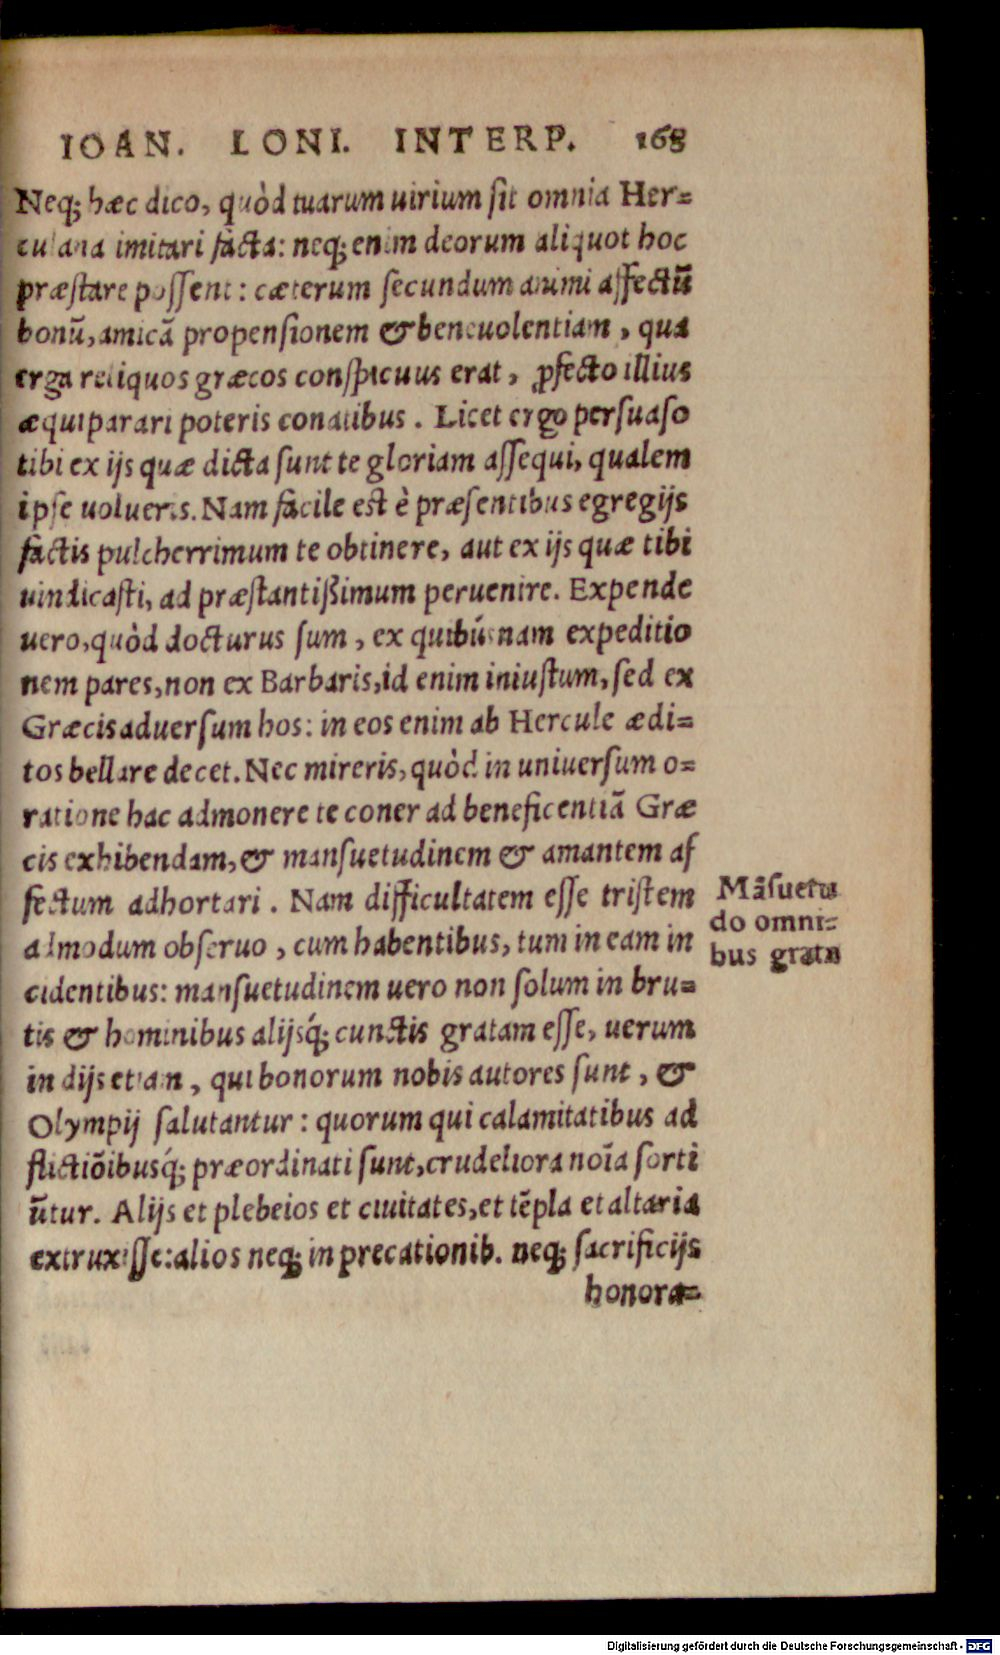 IOAN. LONI. INTERP. 168
Neq; hæc dico, quòd tuarum uirium sit omnia Her=
culana imitari facta: neq; enim deorum aliquot hoc
præstare possent: cæterum secundum animi affectū
bonū, amicā propensionem & beneuolentiam, qua
erga reliquos græcos conspicuus erat, ꝓfecto illius
æquiparari poteris conatibus. Licet ergo persuaso
tibi ex ijs quæ dicta sunt te gloriam assequi, qualem
ipse uolueris. Nam facile est è præsentibus egregijs
factis pulcherrimum te obtinere, aut ex ijs quæ tibi
uindicasti, ad præstantißimum peruenire. Expende
uero, quòd docturus sum, ex quibúsnam expeditio
nem pares, non ex Barbaris, id enim iniustum, sed ex
Græcis aduersum hos: in eos enim ab Hercule ædi=
tos bellare decet. Nec mireris, quòd in uniuersum o=
ratione hac admonere te coner ad beneficentiā Græ
cis exhibendam, & mansuetudinem & amantem af
fectum adhortari. Nam difficultatem esse tristem
admodum obseruo, cum habentibus, tum in eam in
cidentibus: mansuetudinem uero non solum in bru=
tis & hominibus alijsq́; cunctis gratam esse, uerum
in dijs etiam, qui bonorum nobis autores sunt, &
Olympij salutantur: quorum qui calamitatibus ad
flictiōibusq́; præordinati sunt, crudeliora noīa sorti
ūtur. Alijs et plebeios et ciuitates, et tēpla et altaria
extruxisse: alios neq; in precationib. neq; sacrificijs
honora=
Māsuetu
do omni=
bus grata
Digitalisierung gefördert durch die Deutsche Forschungsgemeinschaft - DFG